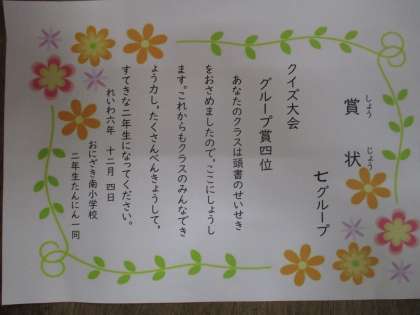 賞状
しょうじょう
七グループ
クイズ大会
グループ賞四位
あなたのクラスは頭書のせいせき
をおさめましたので、ここにしょうし
ます。これからもクラスのみんなでき
ょう力し、たくさんべんきょうして、
すてきな二年生になってください。
れいわ六年 十二月 四日
おにざき南小学校
二年生たんにん一同